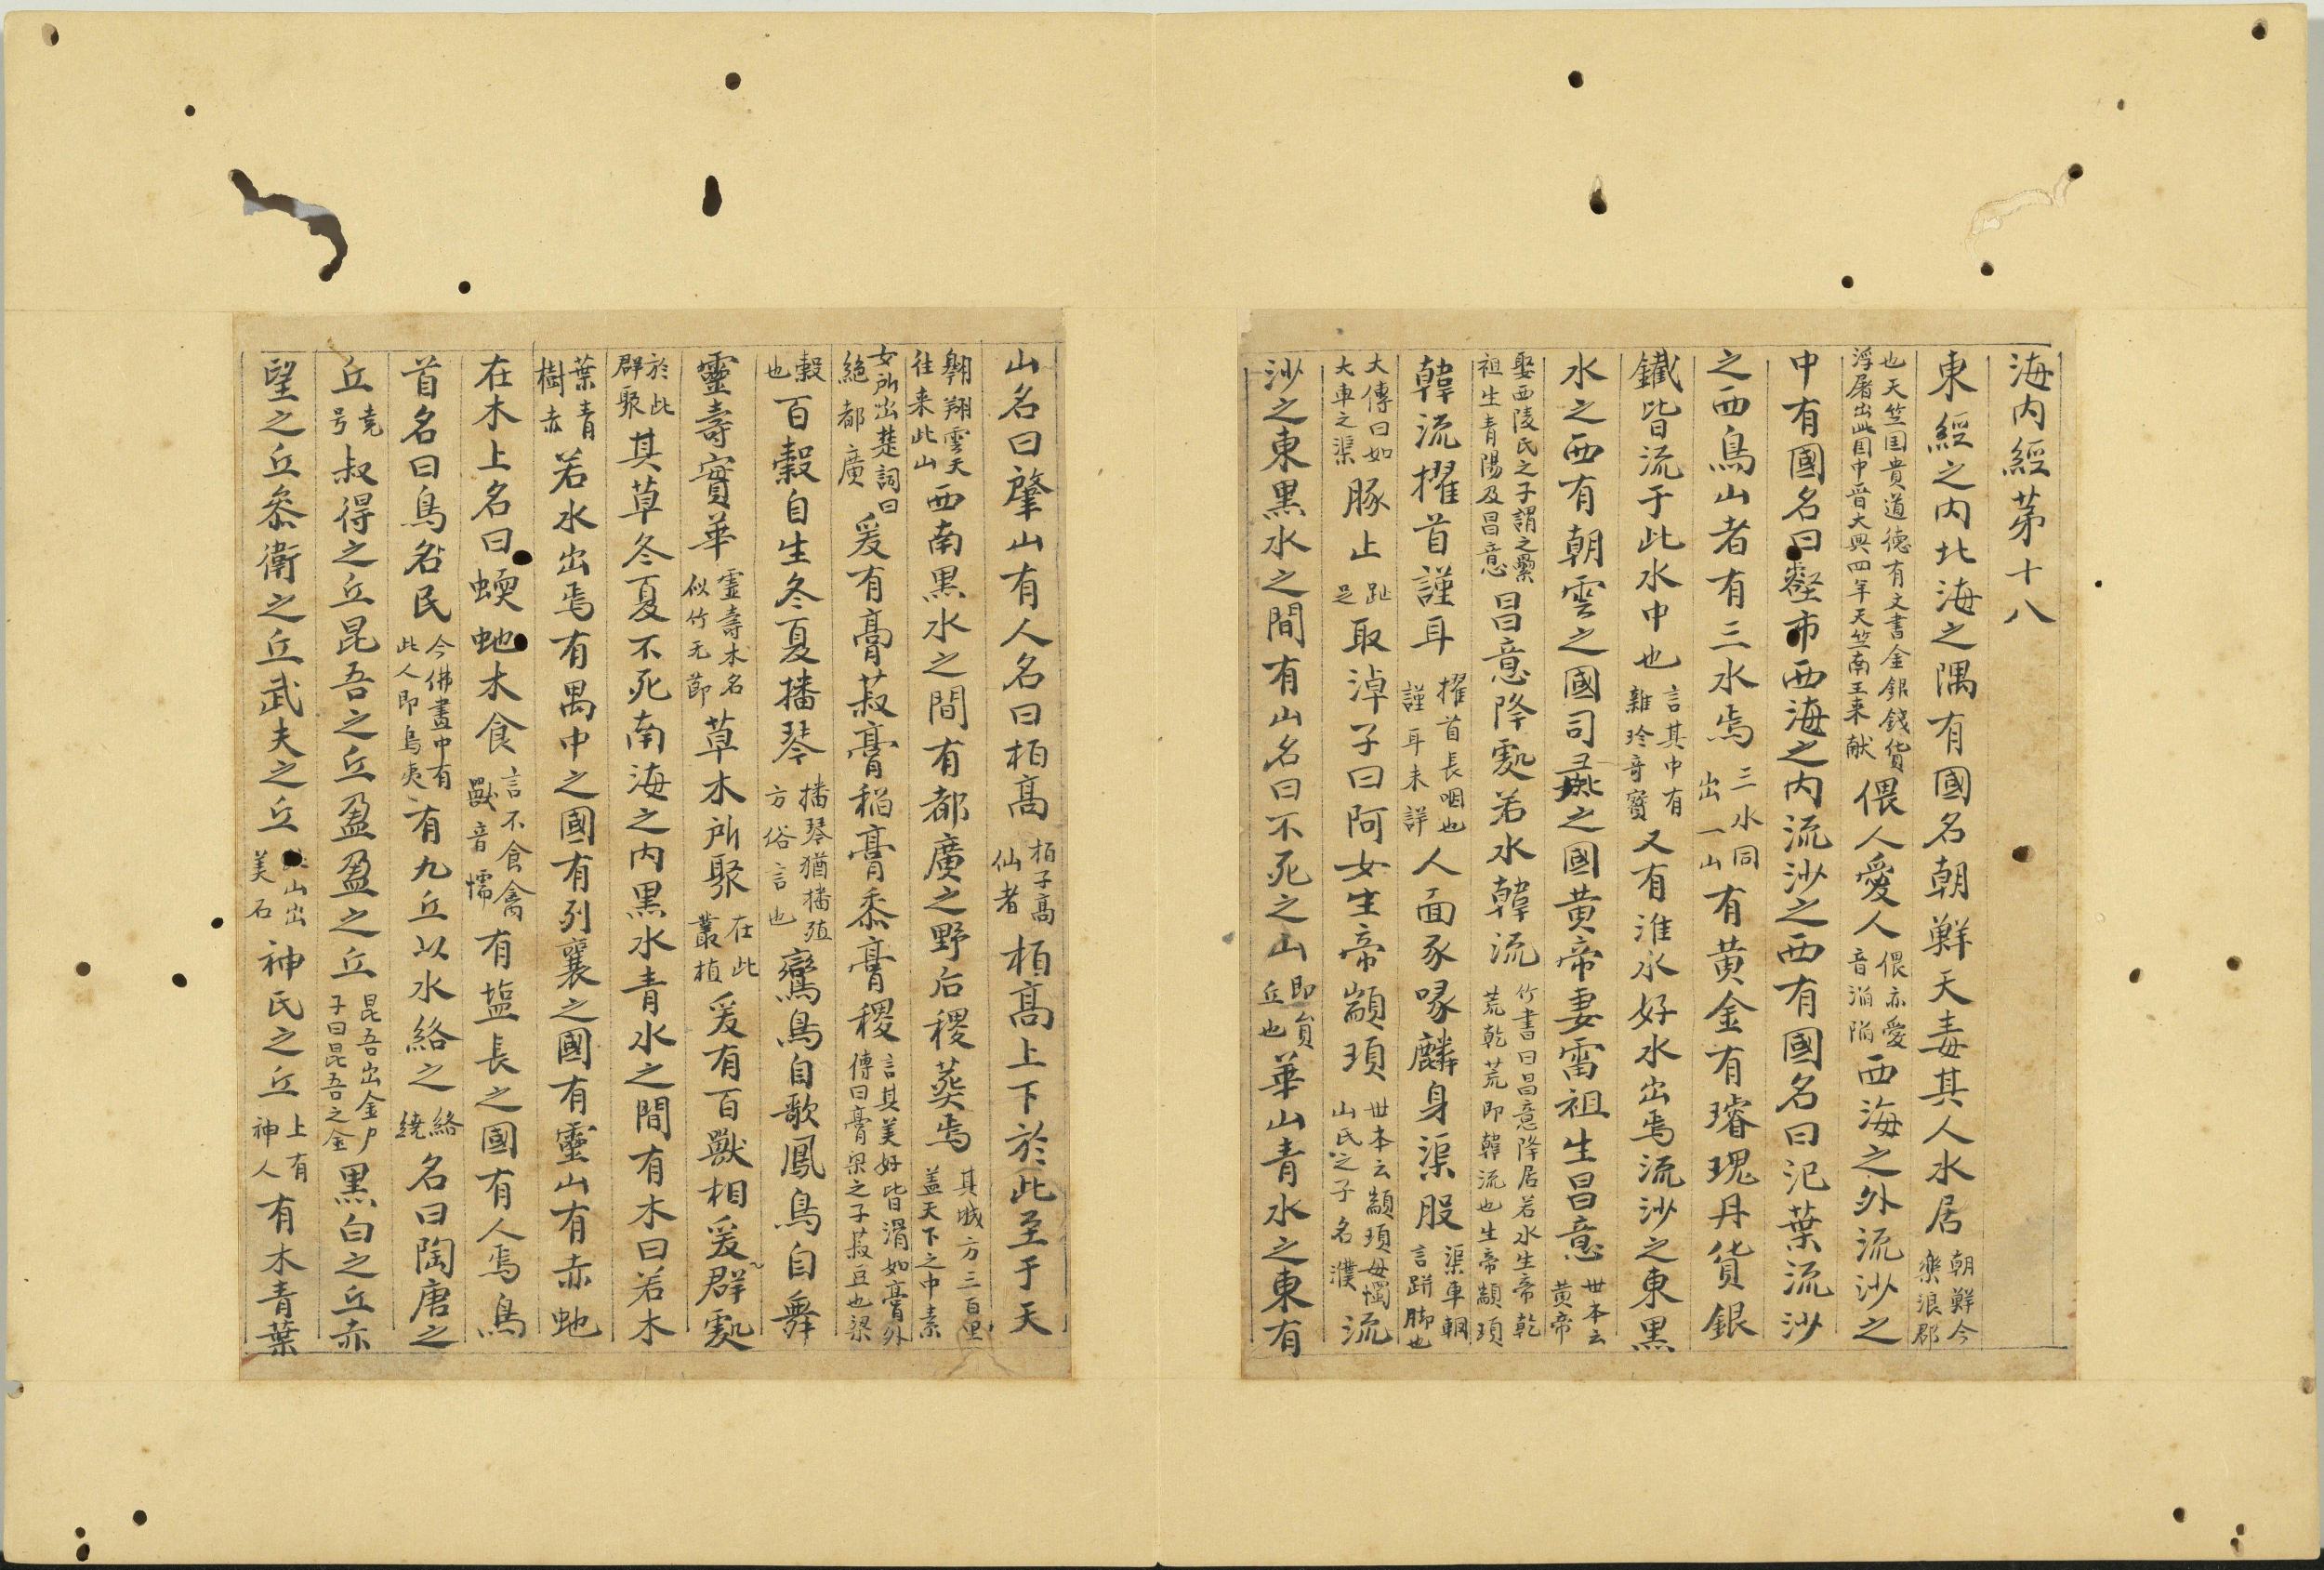 海内經苐十八
東經之内北海之隅有國名朝鮮天毒其人水居朝鮮今樂浪郡
也天竺国貴道徳有文書金銀錢貨浮屠出此国中晋大興四年天竺南王来献偎人愛人偎亦愛音㴞隝西海之外流沙之
中有國名曰壑市西海之内流沙之西有國名曰氾葉流沙
之西鳥山者有三水焉三水同出一山有黄金有璿瑰丹貨銀
鐵皆流于此水中也言其中有雜珍奇寶又有淮水好水出焉流沙之東黒
水之西有朝雲之國司彘之國黄帝妻雷祖生昌意世本云黄帝
娶西陵氏之子謂之纍祖生青陽及昌意昌意降處若水韓流竹書曰昌意降居若水生帝乾荒乾荒即韓流也生帝顓頊
韓流擢首謹耳擢首長咽也謹耳未詳人面豕喙麟身渠股渠車輞言跰脚也
大傳曰如大車之渠豚止趾足取淖子曰阿女生帝顓頊世本云顓頊母濁山氏之子名濮流
沙之東黒水之間有山名曰不死之山即員丘也華山青水之東有
山名曰肇山有人名曰栢髙栢子髙仙者栢髙上下於此至于天
翺翔雲天往来此山西南黒水之間有都廣之野后稷葬焉其城方三百里盖天下之中素
女所出楚詞曰絶都廣爰有膏菽膏稻膏黍膏稷言其美好皆滑如膏外傳曰膏梁之子菽豆也梁
穀也百穀自生冬夏播琴播琴猶播殖方俗言也鸞鳥自歌鳳鳥自舞
靈壽實華霊壽木名似竹无節草木所聚在此叢植爰有百獸相爰群處
於此群聚其草冬夏不死南海之内黒水青水之間有木曰若木
葉青樹赤若水出焉有禺中之國有列襄之國有靈山有赤虵
在木上名曰蝡虵木食言不食禽獸音愞有塩長之國有人焉鳥
首名曰鳥民今佛書中有此人即鳥夷有九丘以水絡之絡繞名曰陶唐之
丘尭号叔得之丘昆吾之丘盈盈之丘昆吾出金尸子曰昆吾之金黒白之丘赤
望之丘叅衛之丘武夫之丘山出美石神民之丘上有神人有木青葉